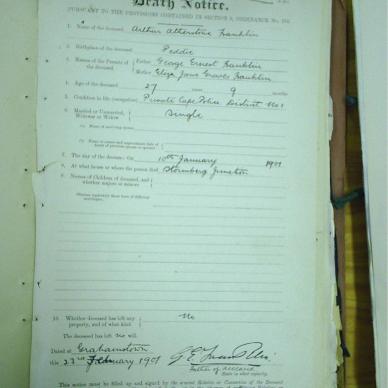 Death Notice.
PURSUANT TO THE PROVISIONS CONTAINED IN SECTION 9, ORDINANCE No. 104
1. Name of the deceased Arthur Atherstone Franklin
2. Birthplace of the deceased Peddie
3. Names of the Parents of the deceased { Father George Ernest Franklin
Mother Eliza Jane Graves Franklin
4. Age of the deceased 27 years 9 months
5. Condition in life (occupation) Private Cape Police District No 1
6. Married or Unmarried, Widower or Widow { Single
(a) Name of surviving
(b) Name and approximate date of death of previous spouse or spouses
7. The day of the decease: On 10th January 1901
8. At what house or where the person died Stormberg Junction
9. Names of Children of deceased, and whether majors or minors
10. Whether deceased has left any property, and of what kind { No
The deceased has left no will.
Dated at Grahamstown
this 23rd February 1901 G E Franklin
Father of deceased
State in what capacity.
This notice must be filled up and signed by the nearest Relative or Connection of the Deceased